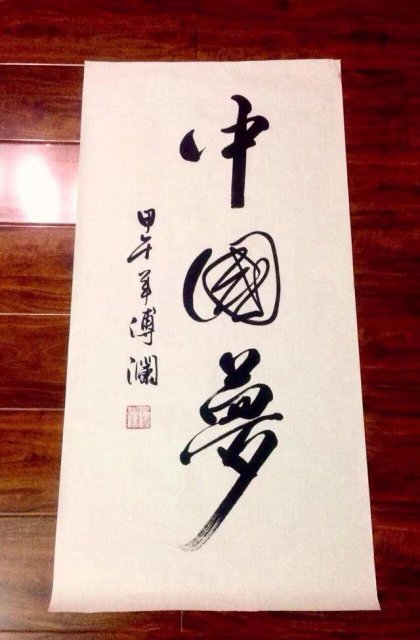 中國夢
甲午年溥瀾